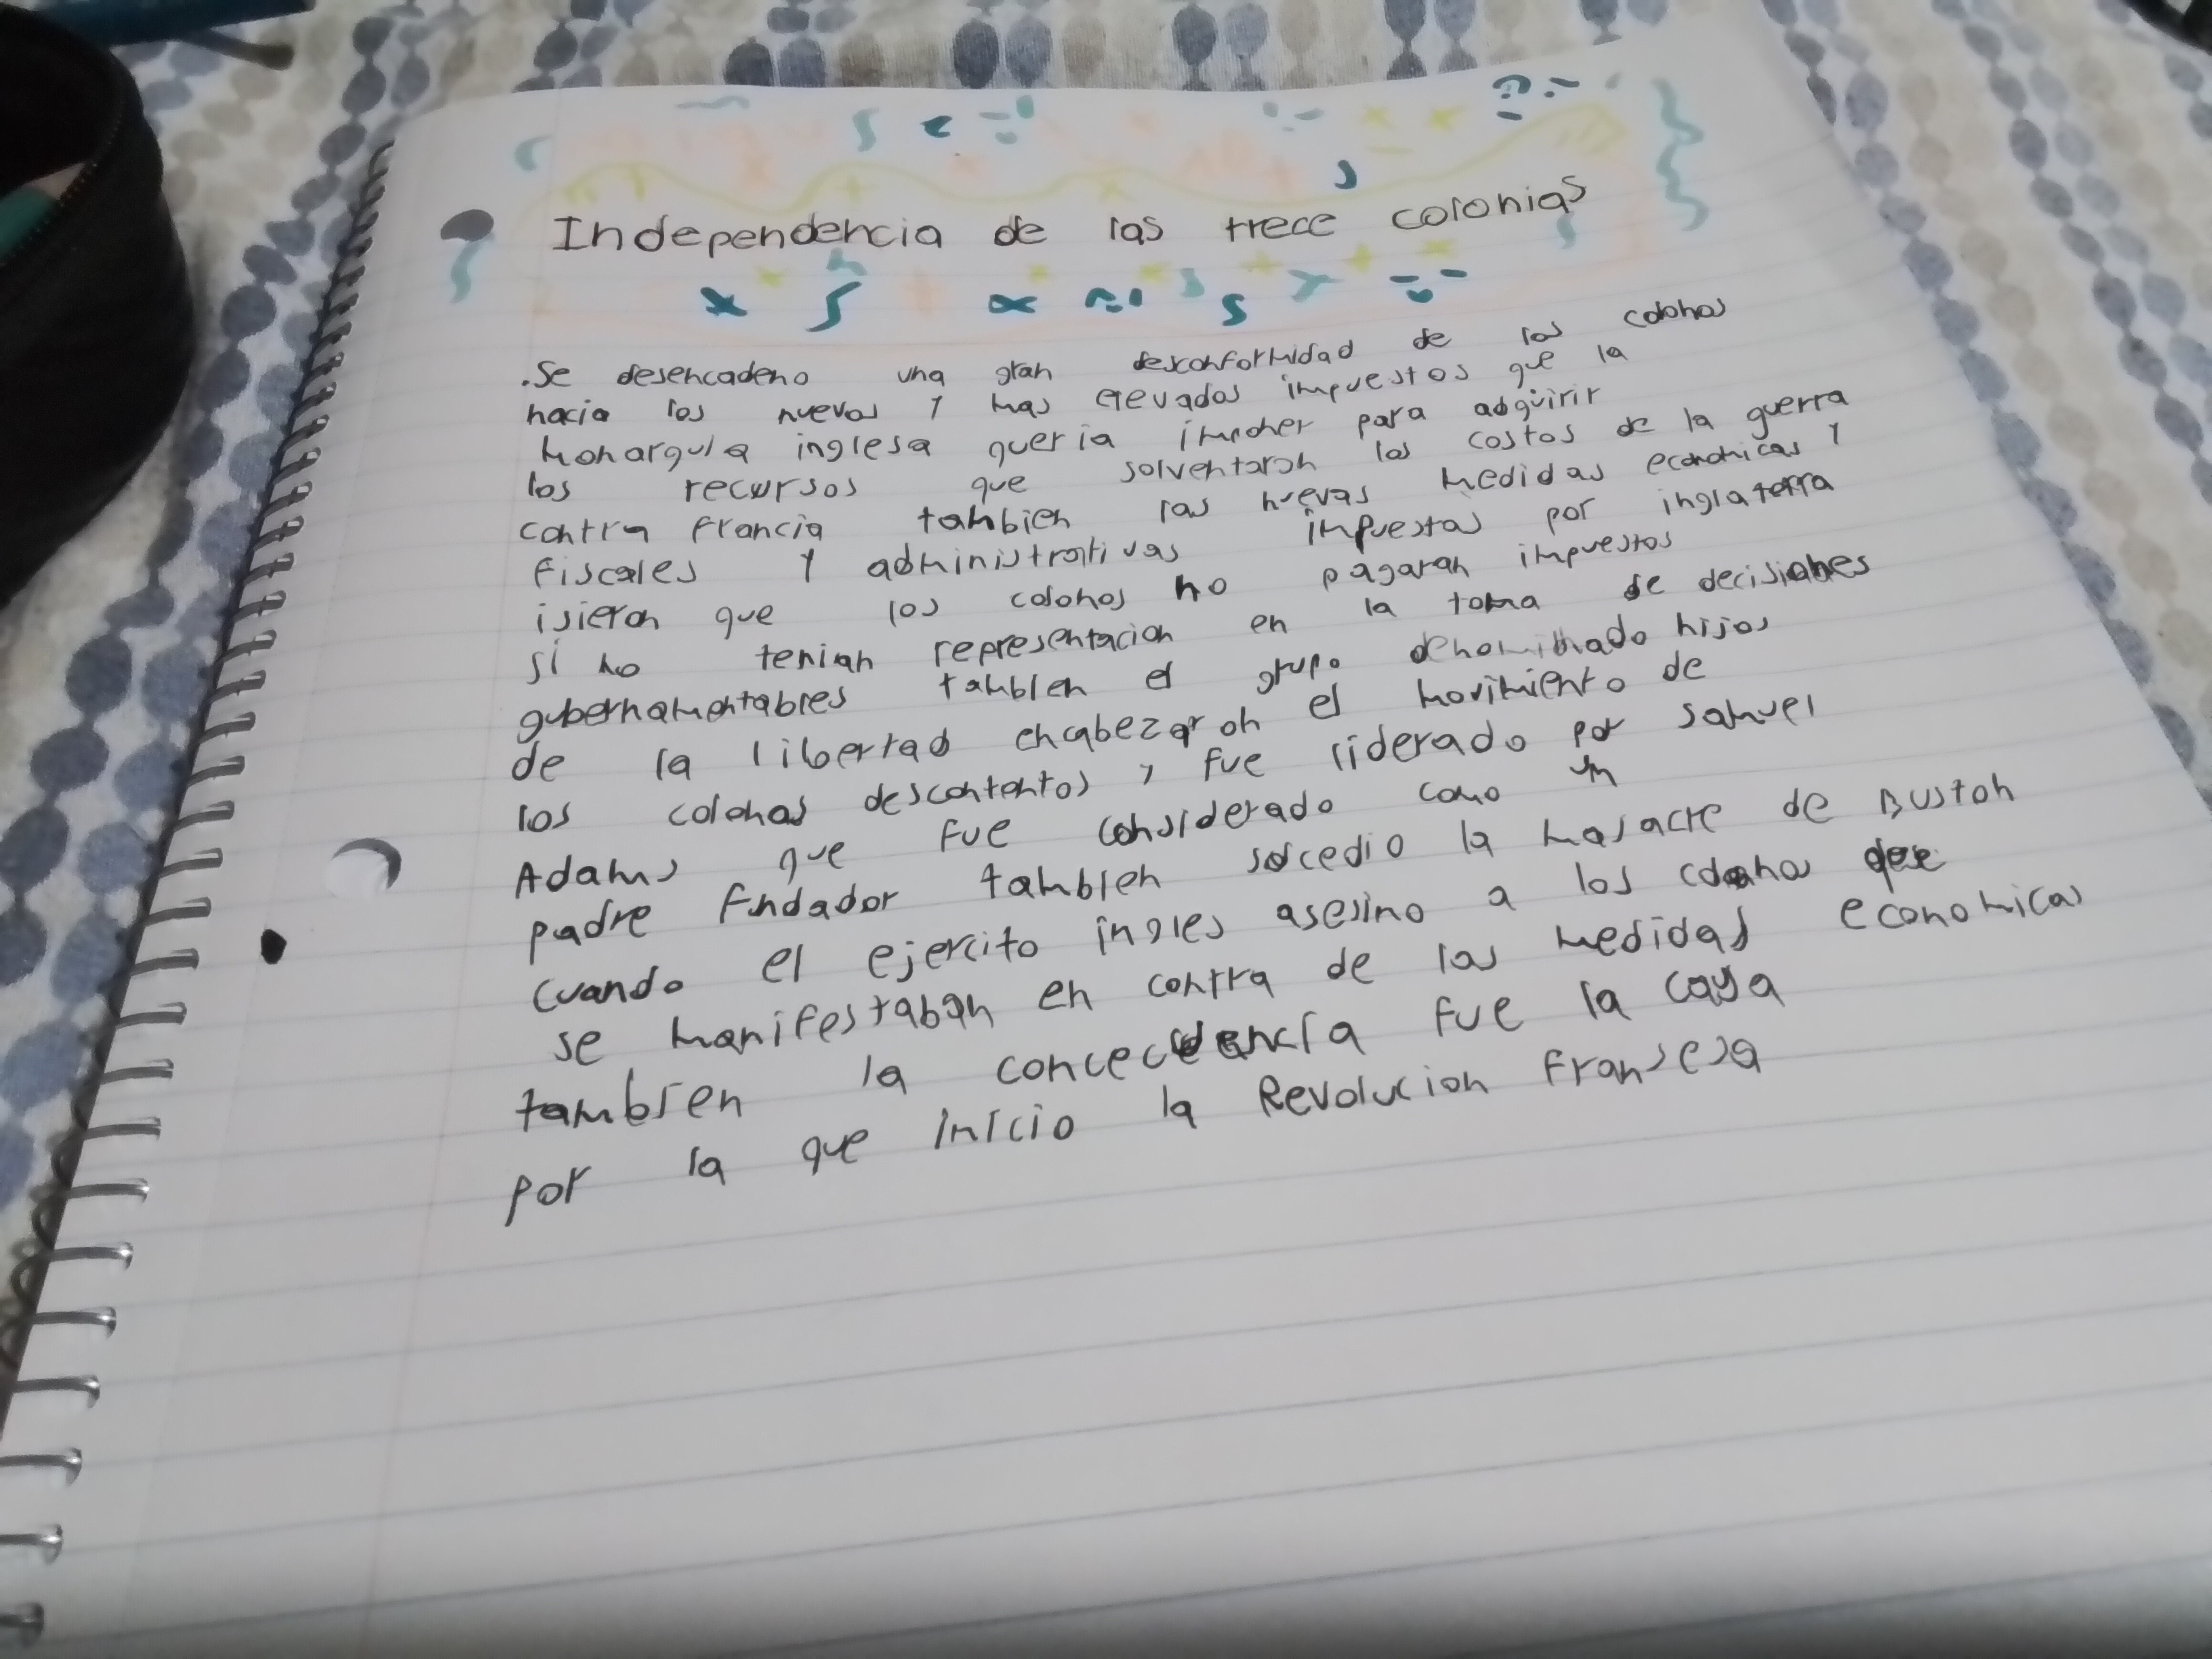 Independencia de las trece colonias
.Se desencadeno una gran desconformidad de los colonos
hacia los nuevos y mas elevados impuestos que la
monarquia inglesa queria imponer para adquirir
los recursos que solventaron los costos de la guerra
contra francia tambien las nuevas medidas economicas y
fiscales y administrativas impuestas por inglaterra
isieron que los colonos no pagaran impuestos
si no tenian representacion en la toma de decisiones
gubernamentables tambien el grupo denominado hijos
de la libertad encabezaron el movimiento de
los colonos descontentos y fue liderado por samuel
Adams que fue considerado como un
padre fundador tambien socedio la masacre de Buston
cuando el ejercito ingles asesino a los colonos que
se manifestaban en contra de las medidas economicas
tambien la fue la causa
por la que inicio la Revolucion fransesa